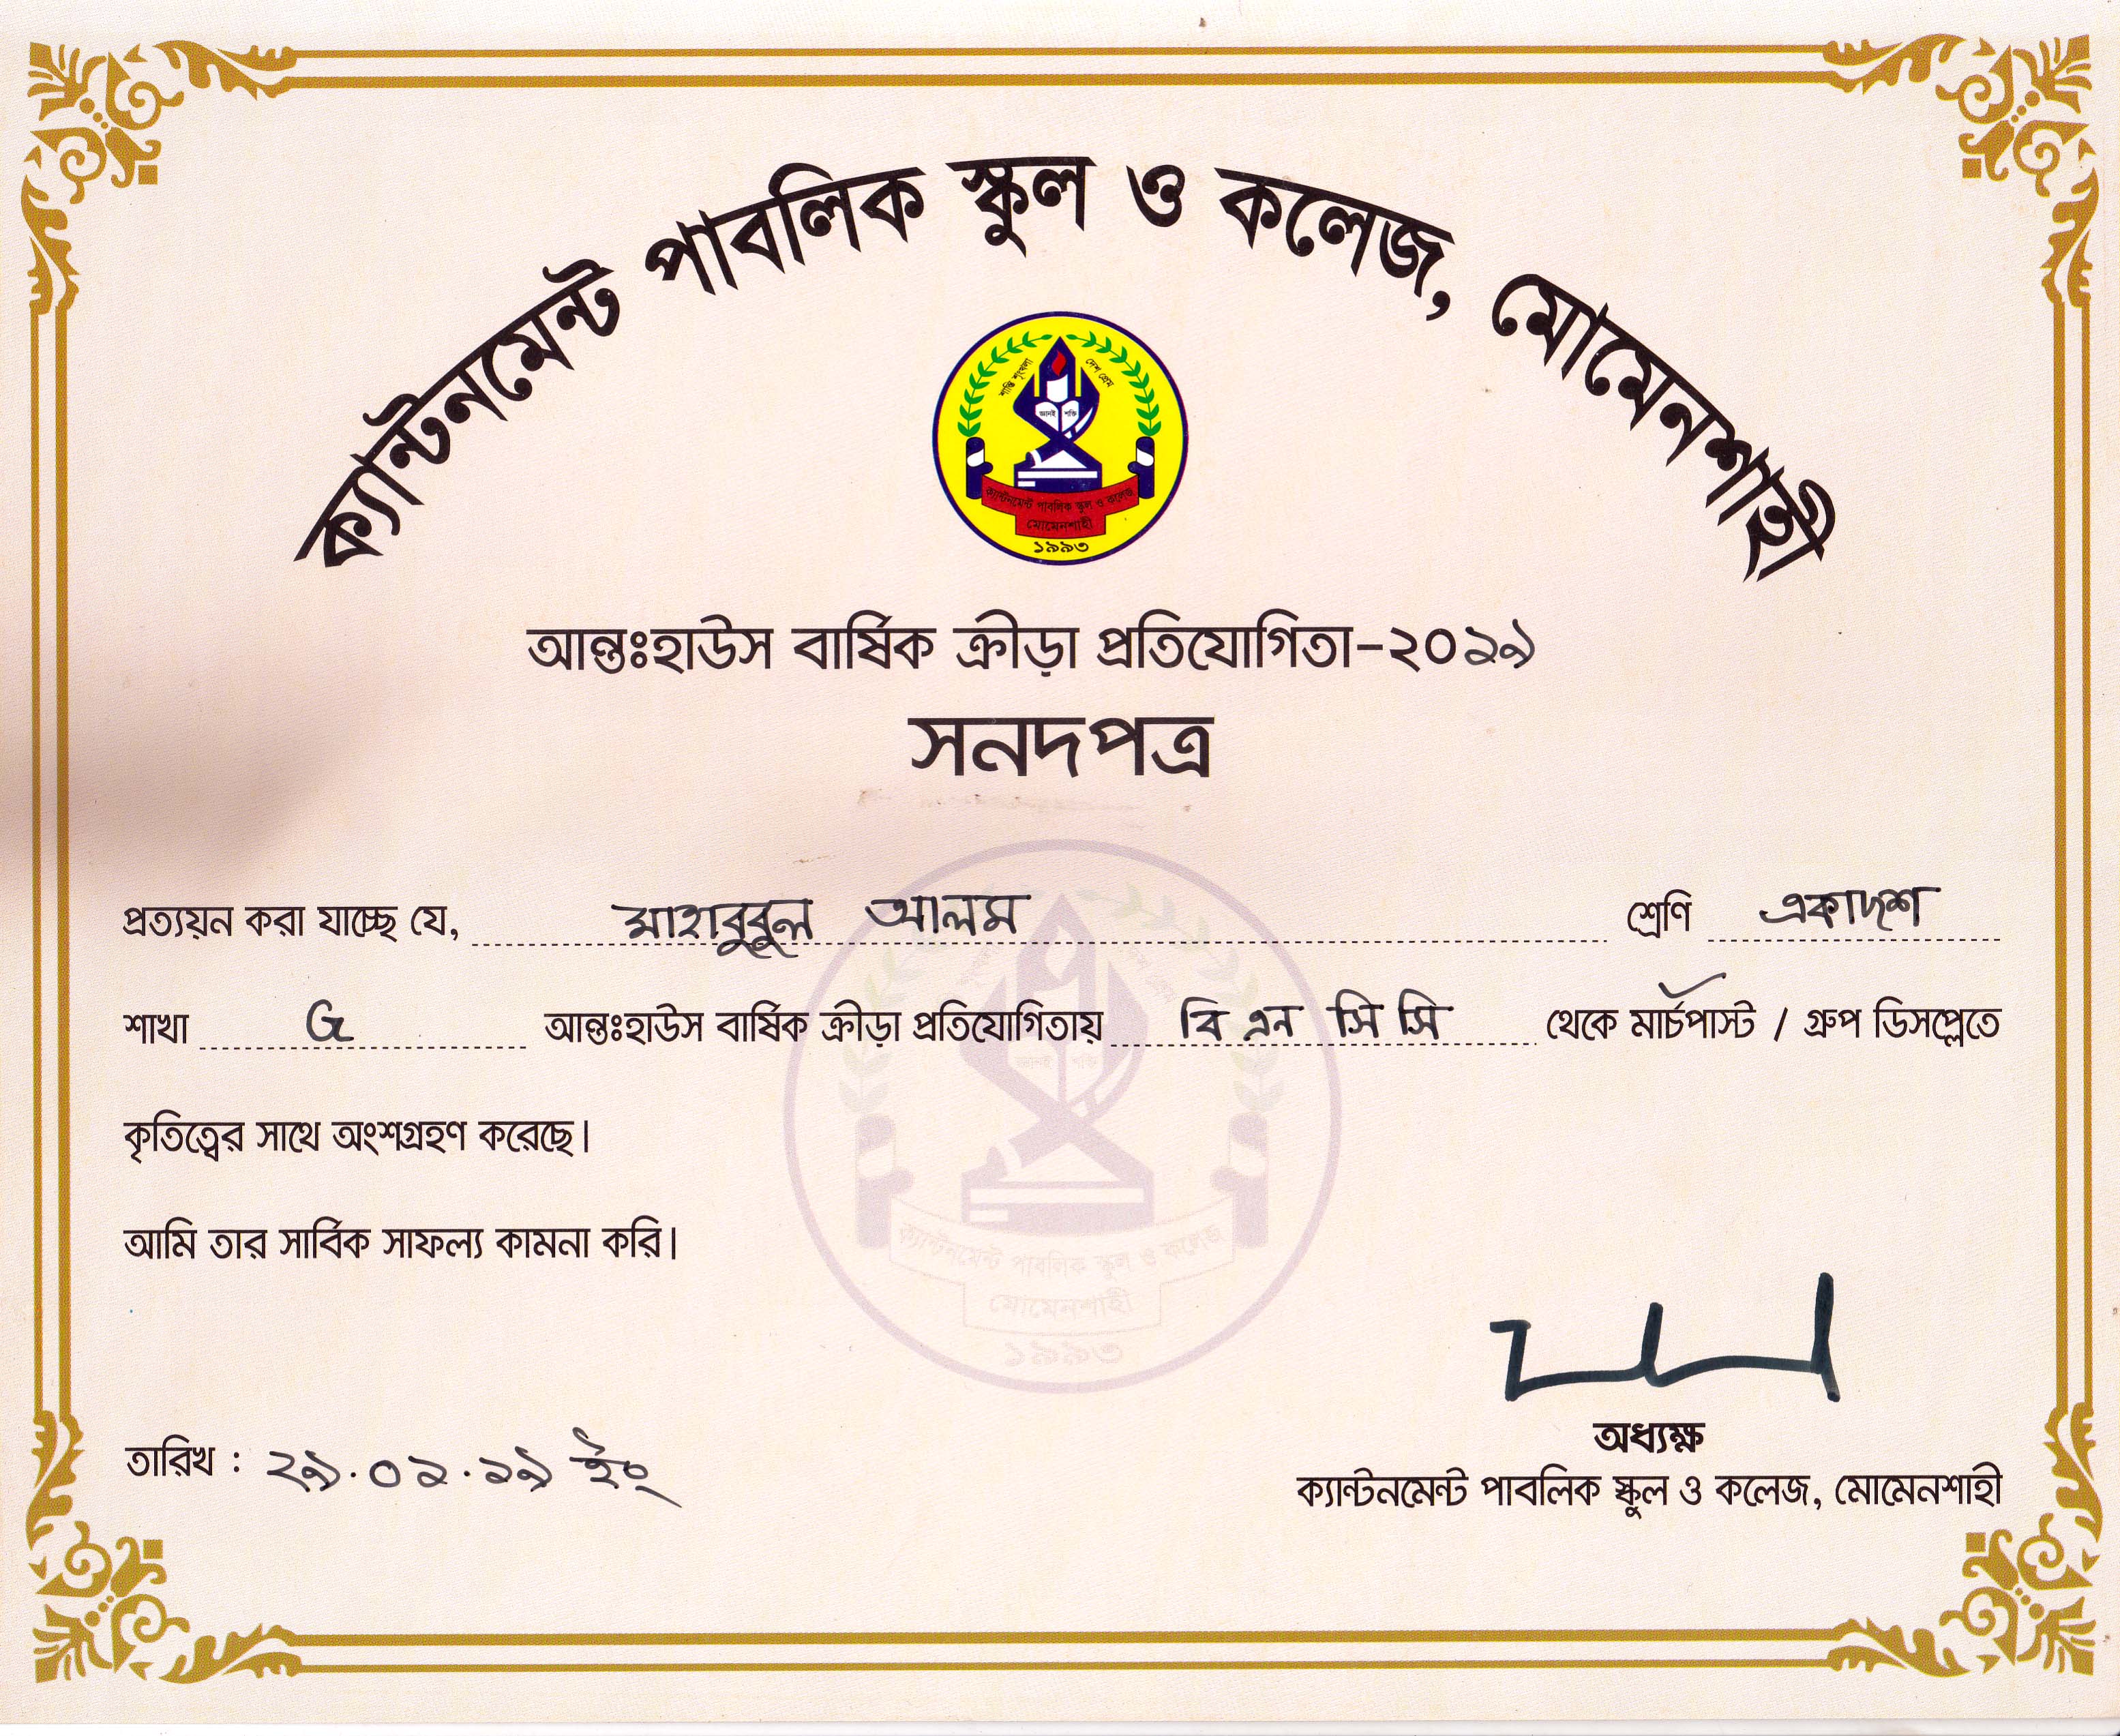 ক্যান্টনমেন্ট পাবলিক স্কুল ও কলেজ, মোমেনশাহী
শান্তি শৃংখলা দেশ প্রেম
জ্ঞানই শক্তি
ক্যান্টনমেন্ট পাবলিক স্কুল ও কলেজ
মোমেনশাহী
১৯৯৩
আন্তঃহাউস বার্ষিক ক্রীড়া প্রতিযোগিতা-২০১৯
সনদপত্র
প্রত্যয়ন করা যাচ্ছে যে, মাহাবুবুল আলম শ্রেণি একাদশ
শাখা G আন্তঃহাউস বার্ষিক ক্রীড়া প্রতিযোগিতায় বি এন সি সি থেকে মার্চপাস্ট / গ্রুপ ডিসপ্লেতে
কৃতিত্বের সাথে অংশগ্রহণ করেছে।
আমি তার সার্বিক সাফল্য কামনা করি।
ক্যান্টনমেন্ট পাবলিক স্কুল ও কলেজ
মোমেনশাহী
১৯৯৩
তারিখ : ২৯.০১.১৯ ইং
অধ্যক্ষ
ক্যান্টনমেন্ট পাবলিক স্কুল ও কলেজ, মোমেনশাহী